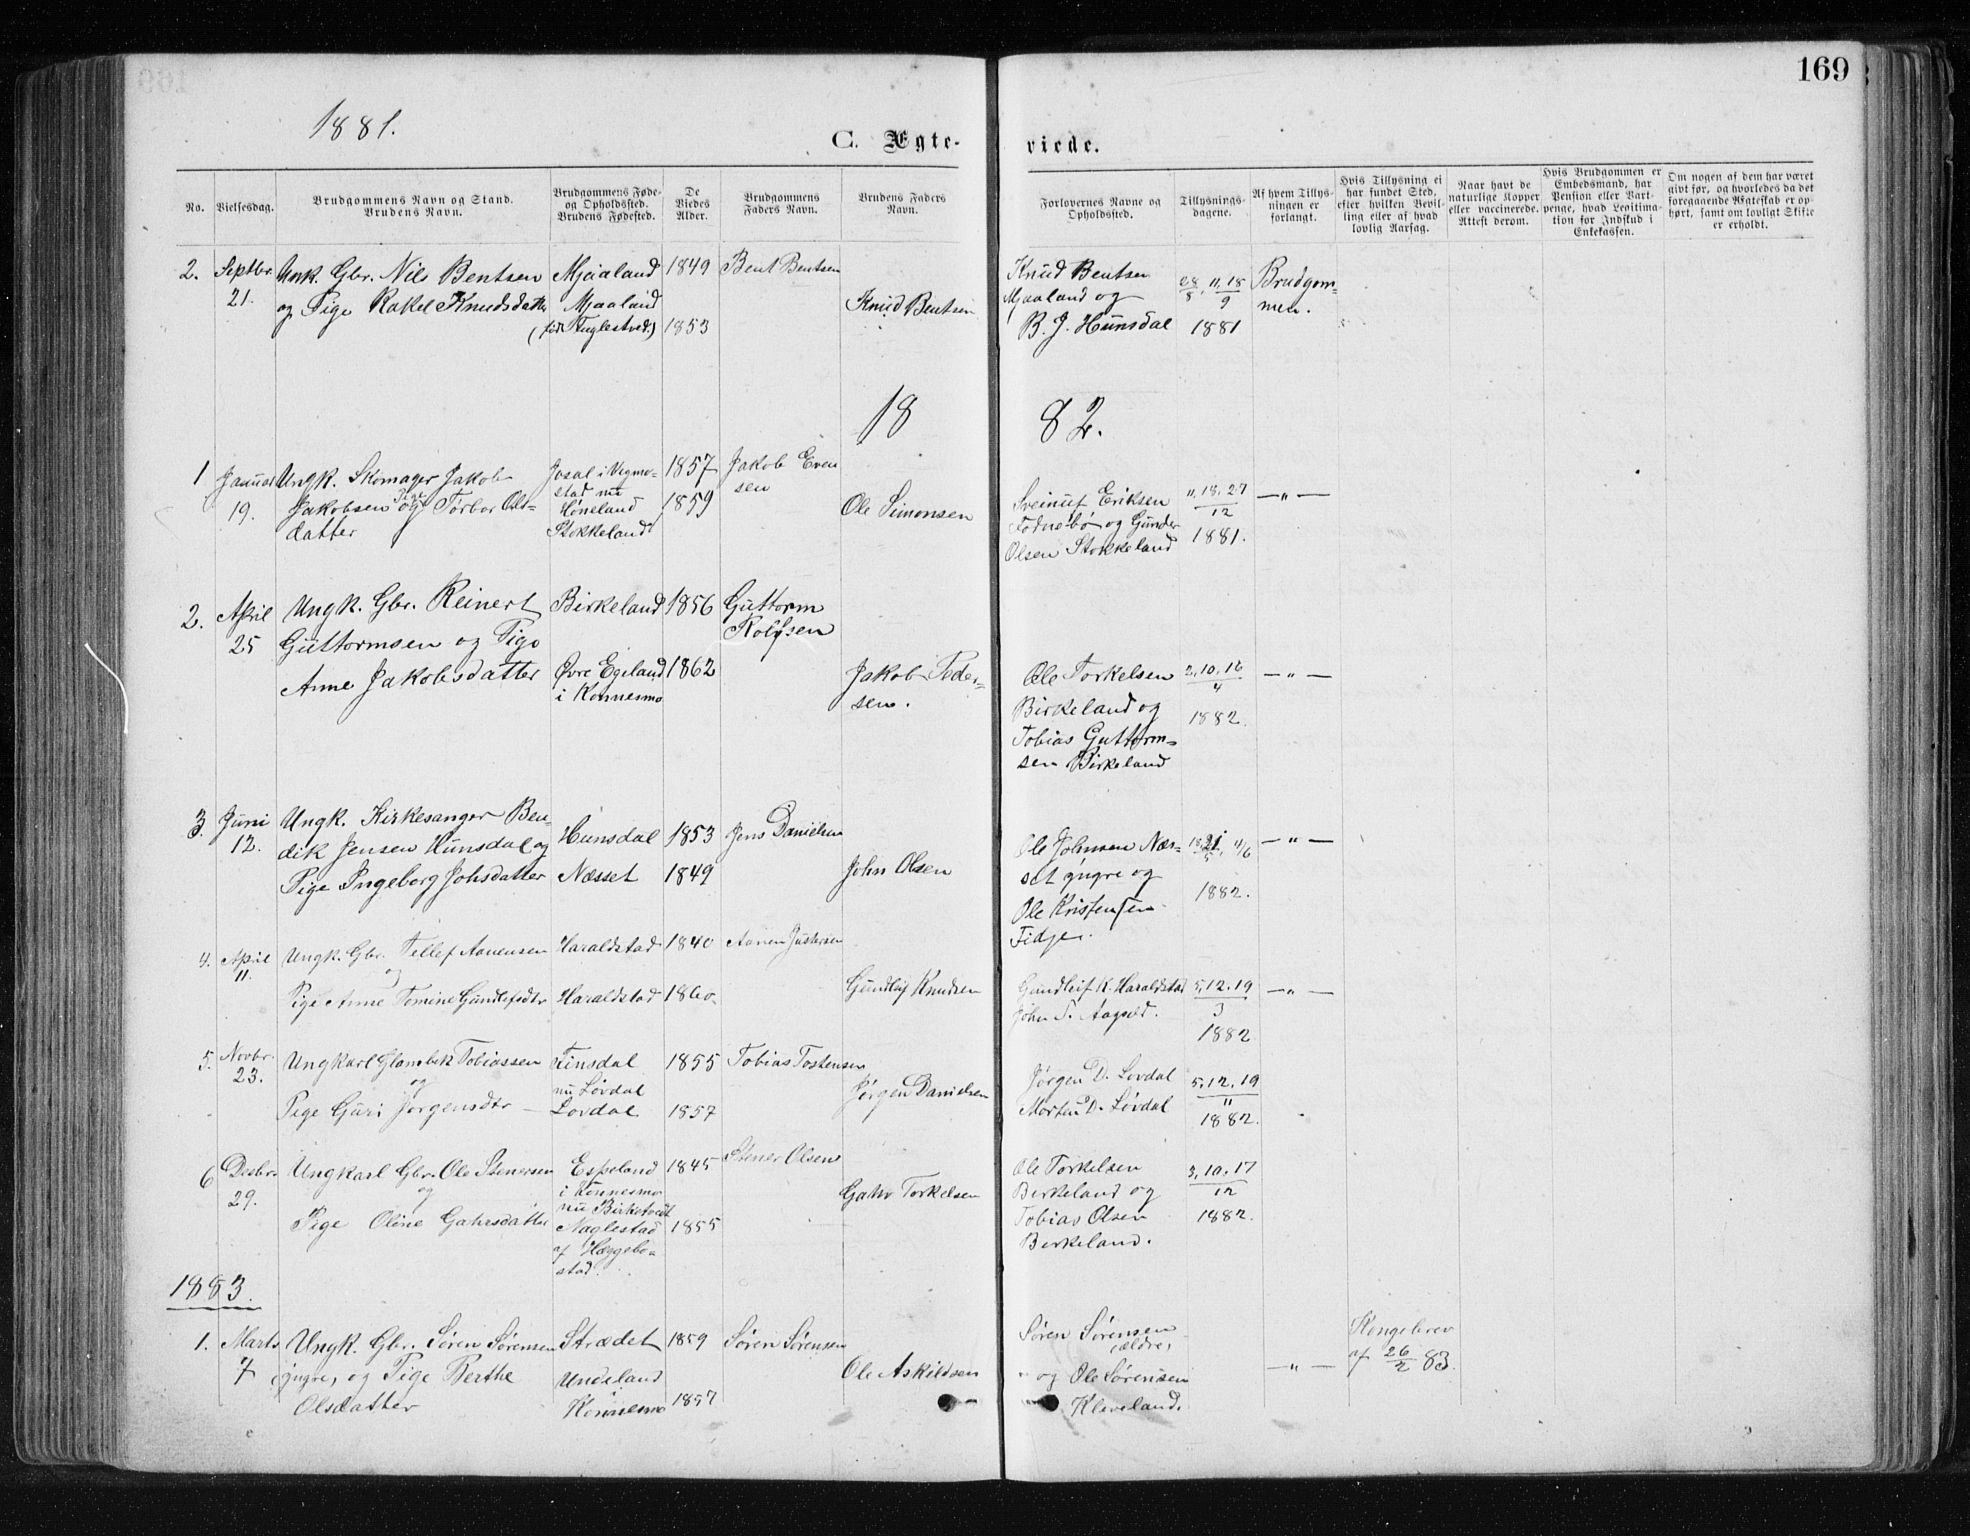 169
1881.
C. Ægte-
viede.
No.
Vielsesdag.
Brudgommens Navn og Stand.
Brudens Navn.
Brudgommens Føde-
og Opholdssted.
Brudens Fødested.
De
Viedes
Alder.
Brudgommens
Faders Navn.
Brudens Faders
Navn.
Forlovernes Navne og
Opholdssted.
Tillysnings-
dagene.
Af hvem Tillys-
ningen er
forlangt.
Hvis Tillysning ei
har fundet Sted,
efter hvilken Bevil-
ling eller af hvad
lovlig Aarsag.
Naar havt de
naturlige Kopper
eller vaccinerede.
Attest derom.
Hvis Brudgommen er
Embedsmand, har
Pension eller Vart-
penge, hvad Legitima-
tion for Indskud i
Enkekassen.
Om nogen af dem har været
gift før, og hvorledes da det
foregaaende Ægteskab er op-
hørt, samt om lovligt Skifte
er erholdt.
2. Septbr. 21.
Unk. Gbr. Nils Bentsen
og Pige Rakel Knudsdatter
Mjaaland
Mjaaland
(født Fuglestvedt)
1849
1853
Bent Bentsen
Knud Bentsen
Knud Bentsen
Mjaaland og
B. J. Hunsdal
28/8, 11, 18/9
1881
Brudgom-
men.
1882.
1 Januar 19.
Ungk. Skomager Jakob
Jakobsen og Pige Torbor Ols-
datter
Josal i Vegmo-
stad nu
Høneland
Stokkeland
1857
1859
Jakob Even
sen
Ole Simonsen
Sveinuf Eriksen
Fodnebø og Gunder
Olsen Stokkeland
11, 18, 27/12
1881.
— „ —
2. April 25
Ungk. Gbr. Reinert
Guttormsen og Pige
Anne Jakobsdatter
Birkeland
Øvre Egeland
i Konnesmo
1856
1862
Guttorm
Rolfsen
Jakob Peder-
sen.
Ole Torkelsen
Birkeland og
Tobias Guttorm-
sen Birkeland
2, 10, 16/4
1882.
— „ —
3. Juni 12.
Ungk. Kirkesanger Ben-
dik Jensen Hunsdal og
Pige Ingeborg Johsdatter
Hunsdal
Næsset
1853
1849
Jens Danielsen
John Olsen
Ole Johnsen Næs-
set yngre og
Ole Kristensen
Fidje.
21/5, 4/6
1882.
— „ —
4. April 11.
Ungk. Gbr. Tellef Aanensen
og
Pige Anne Tomine Gundlefsdtr
Haraldstad
Haraldstad
1840
1860
Aanen Justersen
Gundleif Knudsen
Gundleif K. Haraldstad
John T. Aagsed.
5, 12, 19/3
1882
— „ —
5. Novbr. 23.
Ungkarl Glambek Tobiassen
og
Pige Guri Jørgensdtr —
Finsdal
nu Løvdal
Løvdal
1855
1857
Tobias Tostensen
Jørgen Danielsen
Jørgen D. Løvdal
Morten D. Løvdal
5, 12, 19/11
1882.
6 Desbr. 29.
Ungkarl Gbr. Ole Stenersen
og
Pige Oline Gahrsdatter
Espeland
i Konnesmo
nu Birketvedt
Naglestad
af Hæggebo-
stad.
1845
1855
Stener Olsen
Gahr Torkelsen
Ole Torkelsen
Birkeland og
Tobias Olsen
Birkeland.
3, 10, 17/12
1882.
1883.
1. Marts 7
Ungk. Gbr. Søren Sørensen
(yngre) og Pige Berthe
Olsdatter
Strædet
Undeland
Konnesmo
1859
1857
Søren Sørensen
Ole Askildsen
Søren Sørensen
(ældre)
og Ole Sørensen
Kleveland.
— „ —
Kongebrev
af 26/2 83.